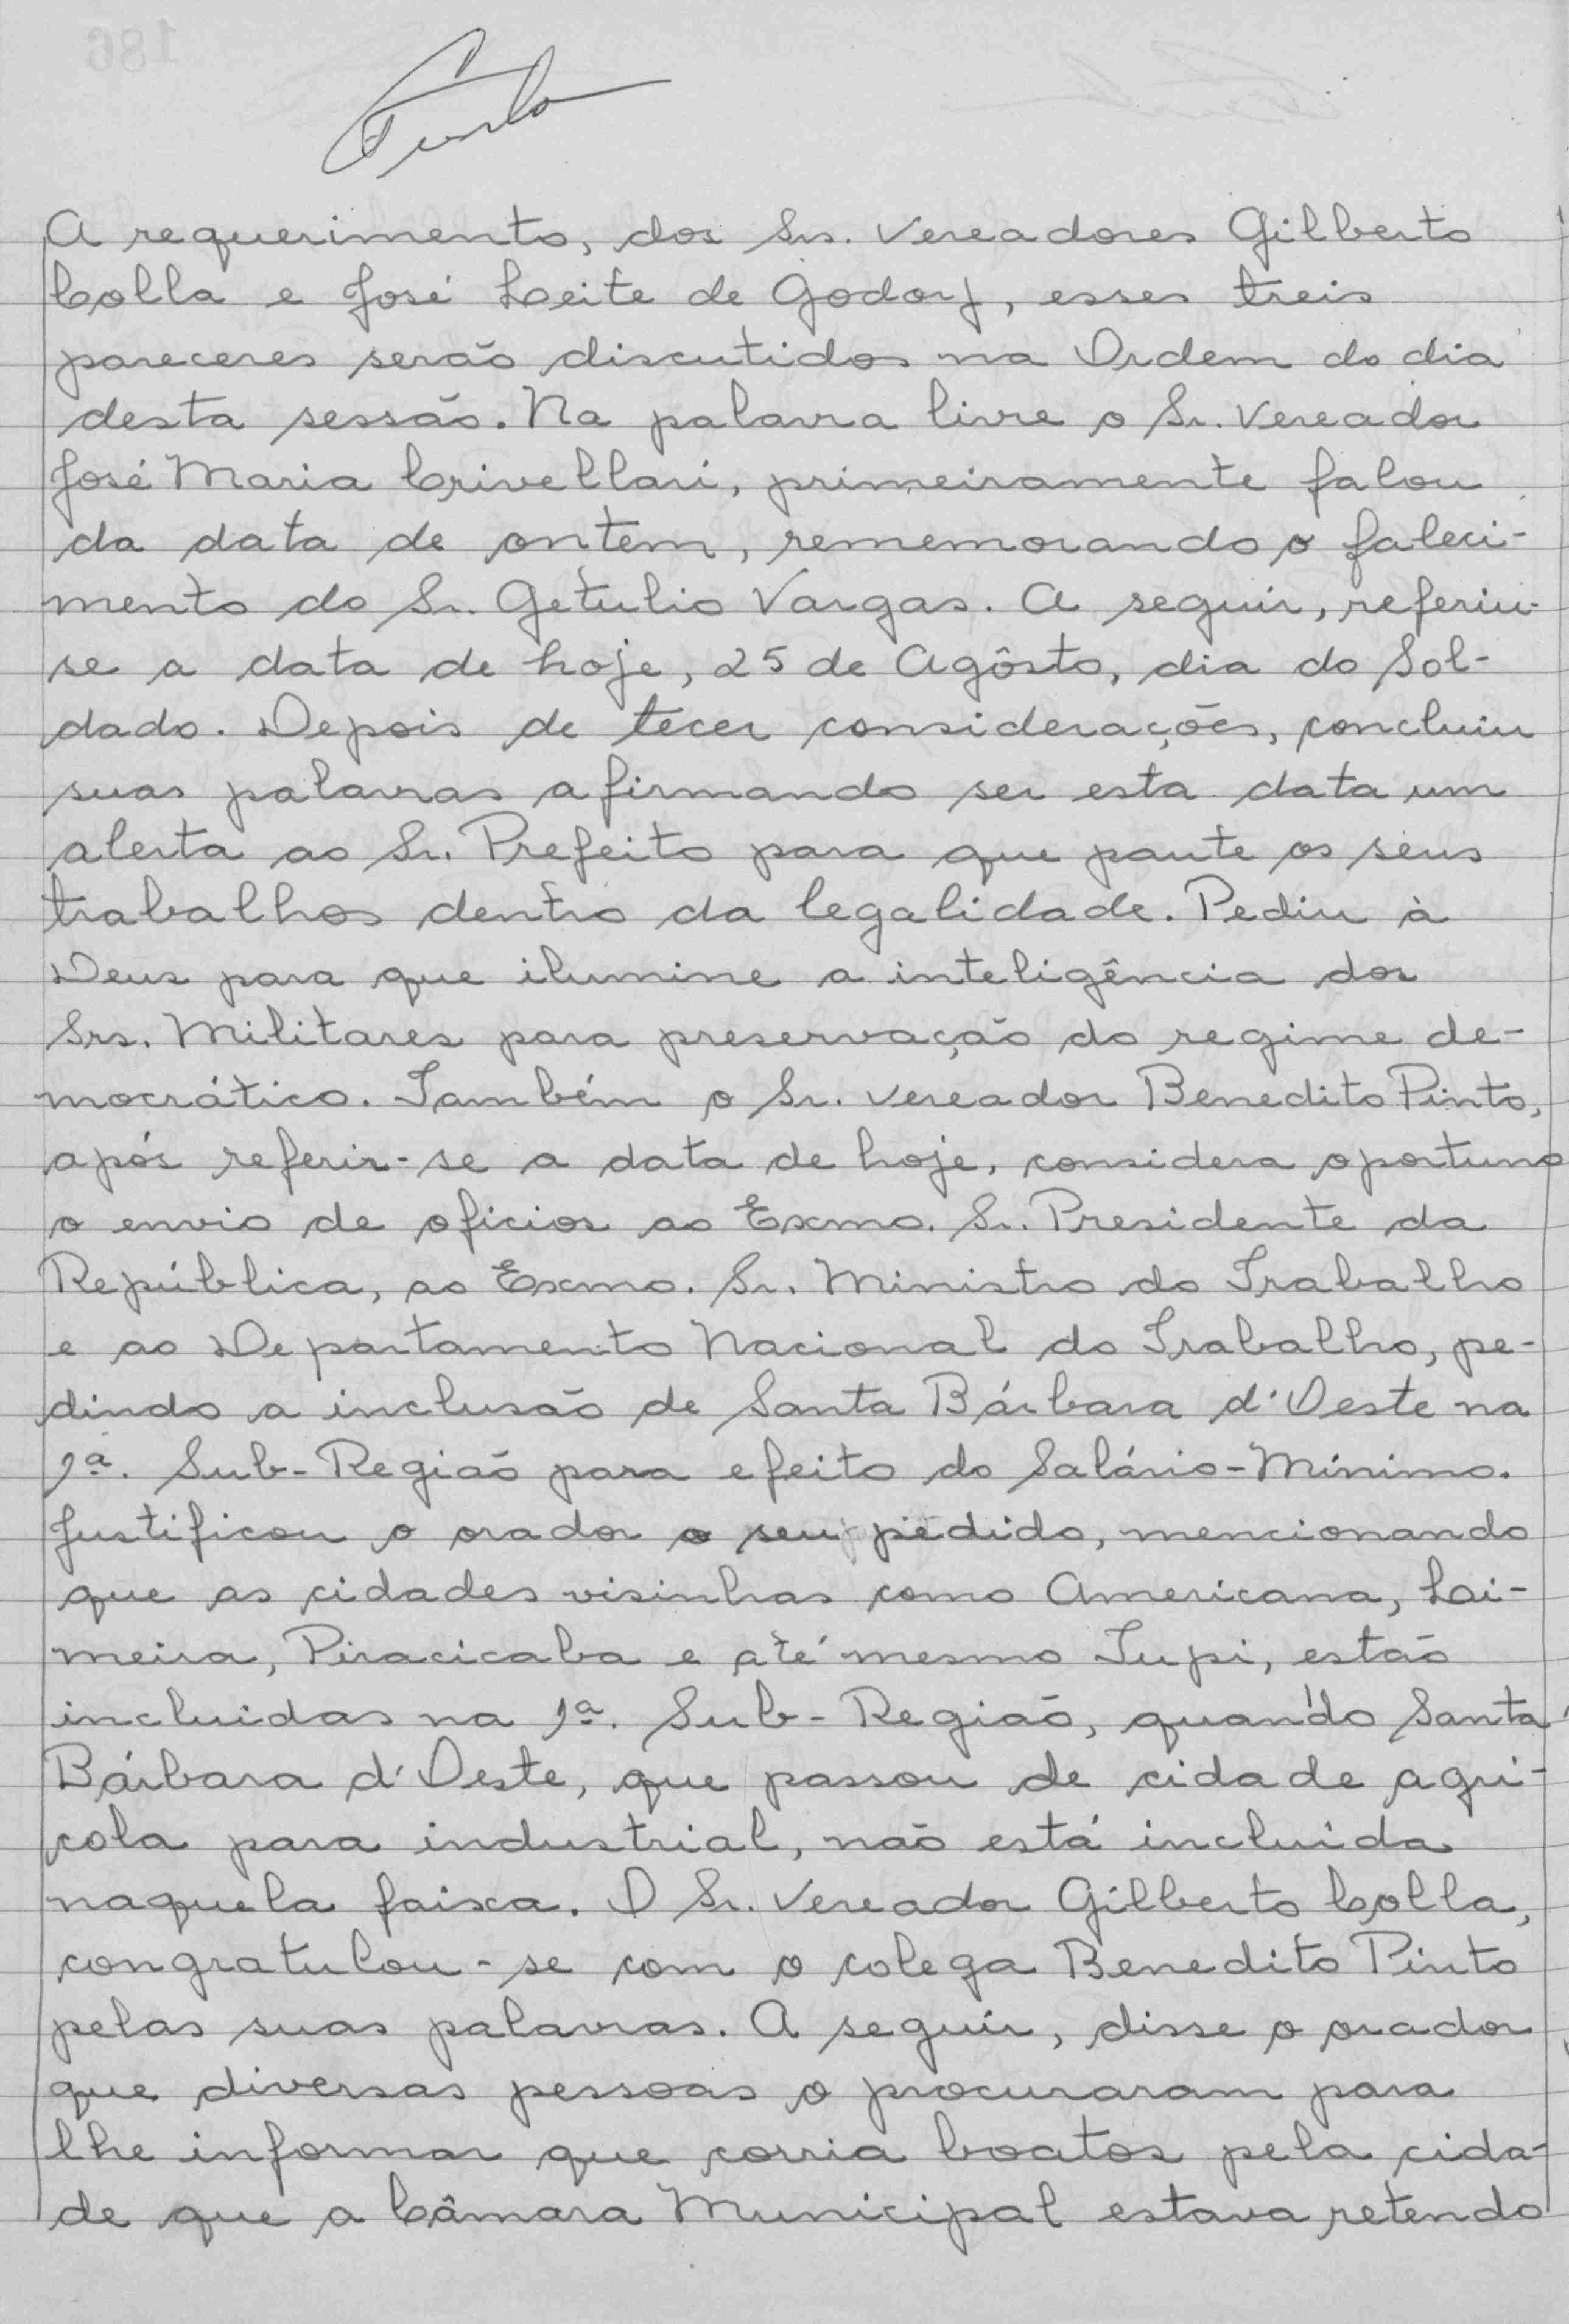 A requerimento, dos Srs. Vereadores Gilberto
Colla e José Leite de Godoy, esses treis
pareceres serão discutidos na Ordem do dia
desta sessão. Na palavra livre o Sr. Vereador
José Maria Crivellari, primeiramente falou
da data de ontem, rememorando o faleci-
mento do Sr. Getulio Vargas. A seguir, referiu-
se a data de hoje, 25 de Agôsto, dia do Sol-
dado. Depois de tecer considerações, concluiu
suas palavras afirmando ser esta data um
alerta ao Sr. Prefeito para que paute os seus
trabalhos dentro da legalidade. Pediu à
Deus para que ilumine a inteligência dos
Srs. Militares para preservação do regime de-
mocrático. Também o Sr. Vereador Benedito Pinto,
após referir-se a data de hoje, considera oportuno
o envio de oficios ao Exmo. Sr. Presidente da
República, ao Exmo. Sr. Ministro do Trabalho
e ao Departamento Nacional do Trabalho, pe-
dindo a inclusão de Santa Bárbara d'Oeste na
1ª. Sub-Região para efeito do Salário-Mínimo.
Justificou o orador o seu pedido, mencionando
que as cidades visinhas como Americana, Lai-
meira, Piracicaba e até mesmo Tupi, estão
incluidas na 1ª. Sub-Região, quando Santa
Bárbara d'Oeste, que passou de cidade agri-
cola para industrial, não está incluida
naquela faixa. O Sr. Vereador Gilberto Colla,
congratulou-se com o colega Benedito Pinto
pelas suas palavras. A seguir, disse o orador
que diversas pessoas o procuraram para
lhe informar que corria boatos pela cida-
de que a Câmara Municipal estava retendo